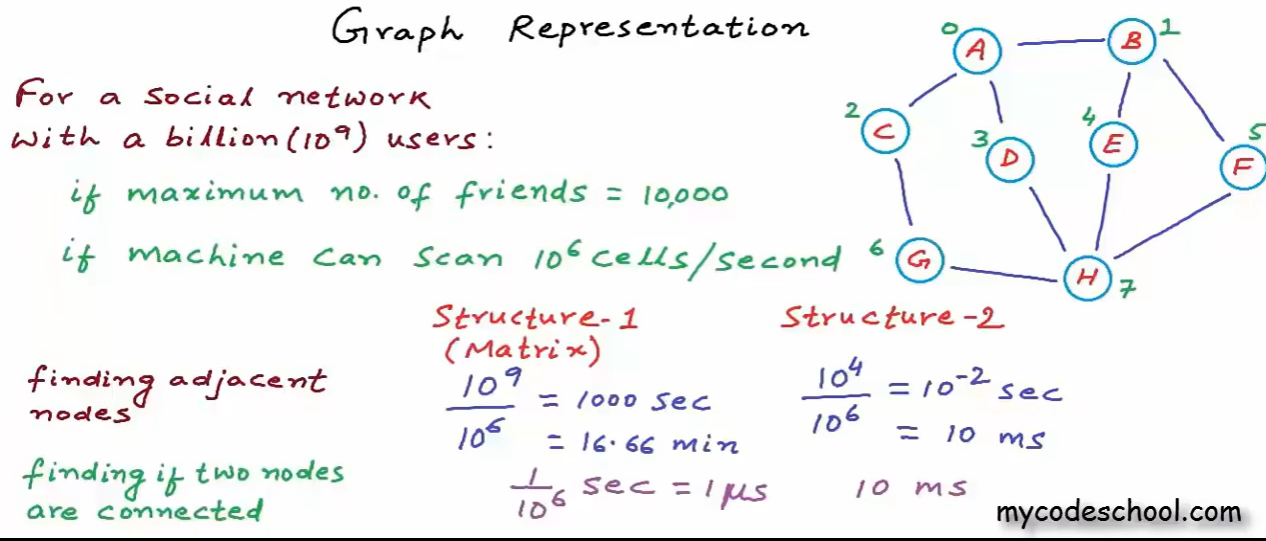 Graph Representation
For a social network
with a billion (10^9) users:
if maximum no. of friends = 10,000
if machine can scan 10^6 cells/second
0 A
B 1
2 C
3 D
4 E
5 F
6 G
H 7
Structure-1 Structure-2
(Matrix)
finding adjacent nodes
10^9/10^6 = 1000 sec
= 16.66 min
10^4/10^6 = 10^-2 sec
= 10 ms
finding if two nodes
are connected
1/10^6 sec = 1 μs 10 ms
mycodeschool.com